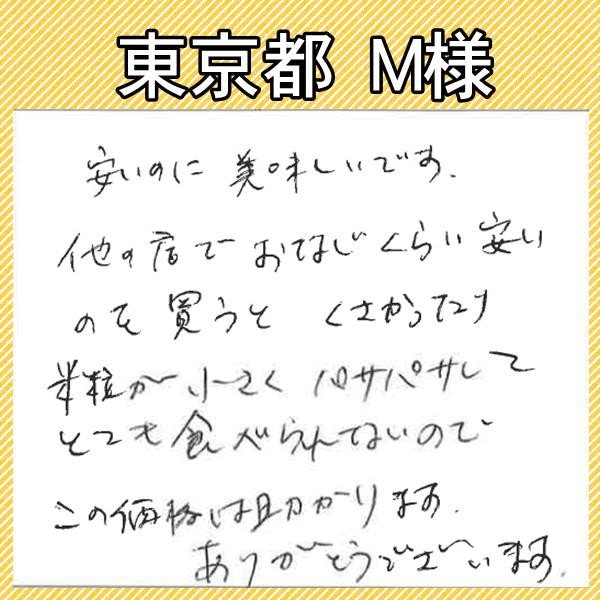 東京都 M様
安いのに 美味しいです.
他の店で おなじくらい安い
のを 買うと くさかったり
米粒が 小さく パサパサして
とても 食べられないので
この価格は助かります.
ありがとうございます.